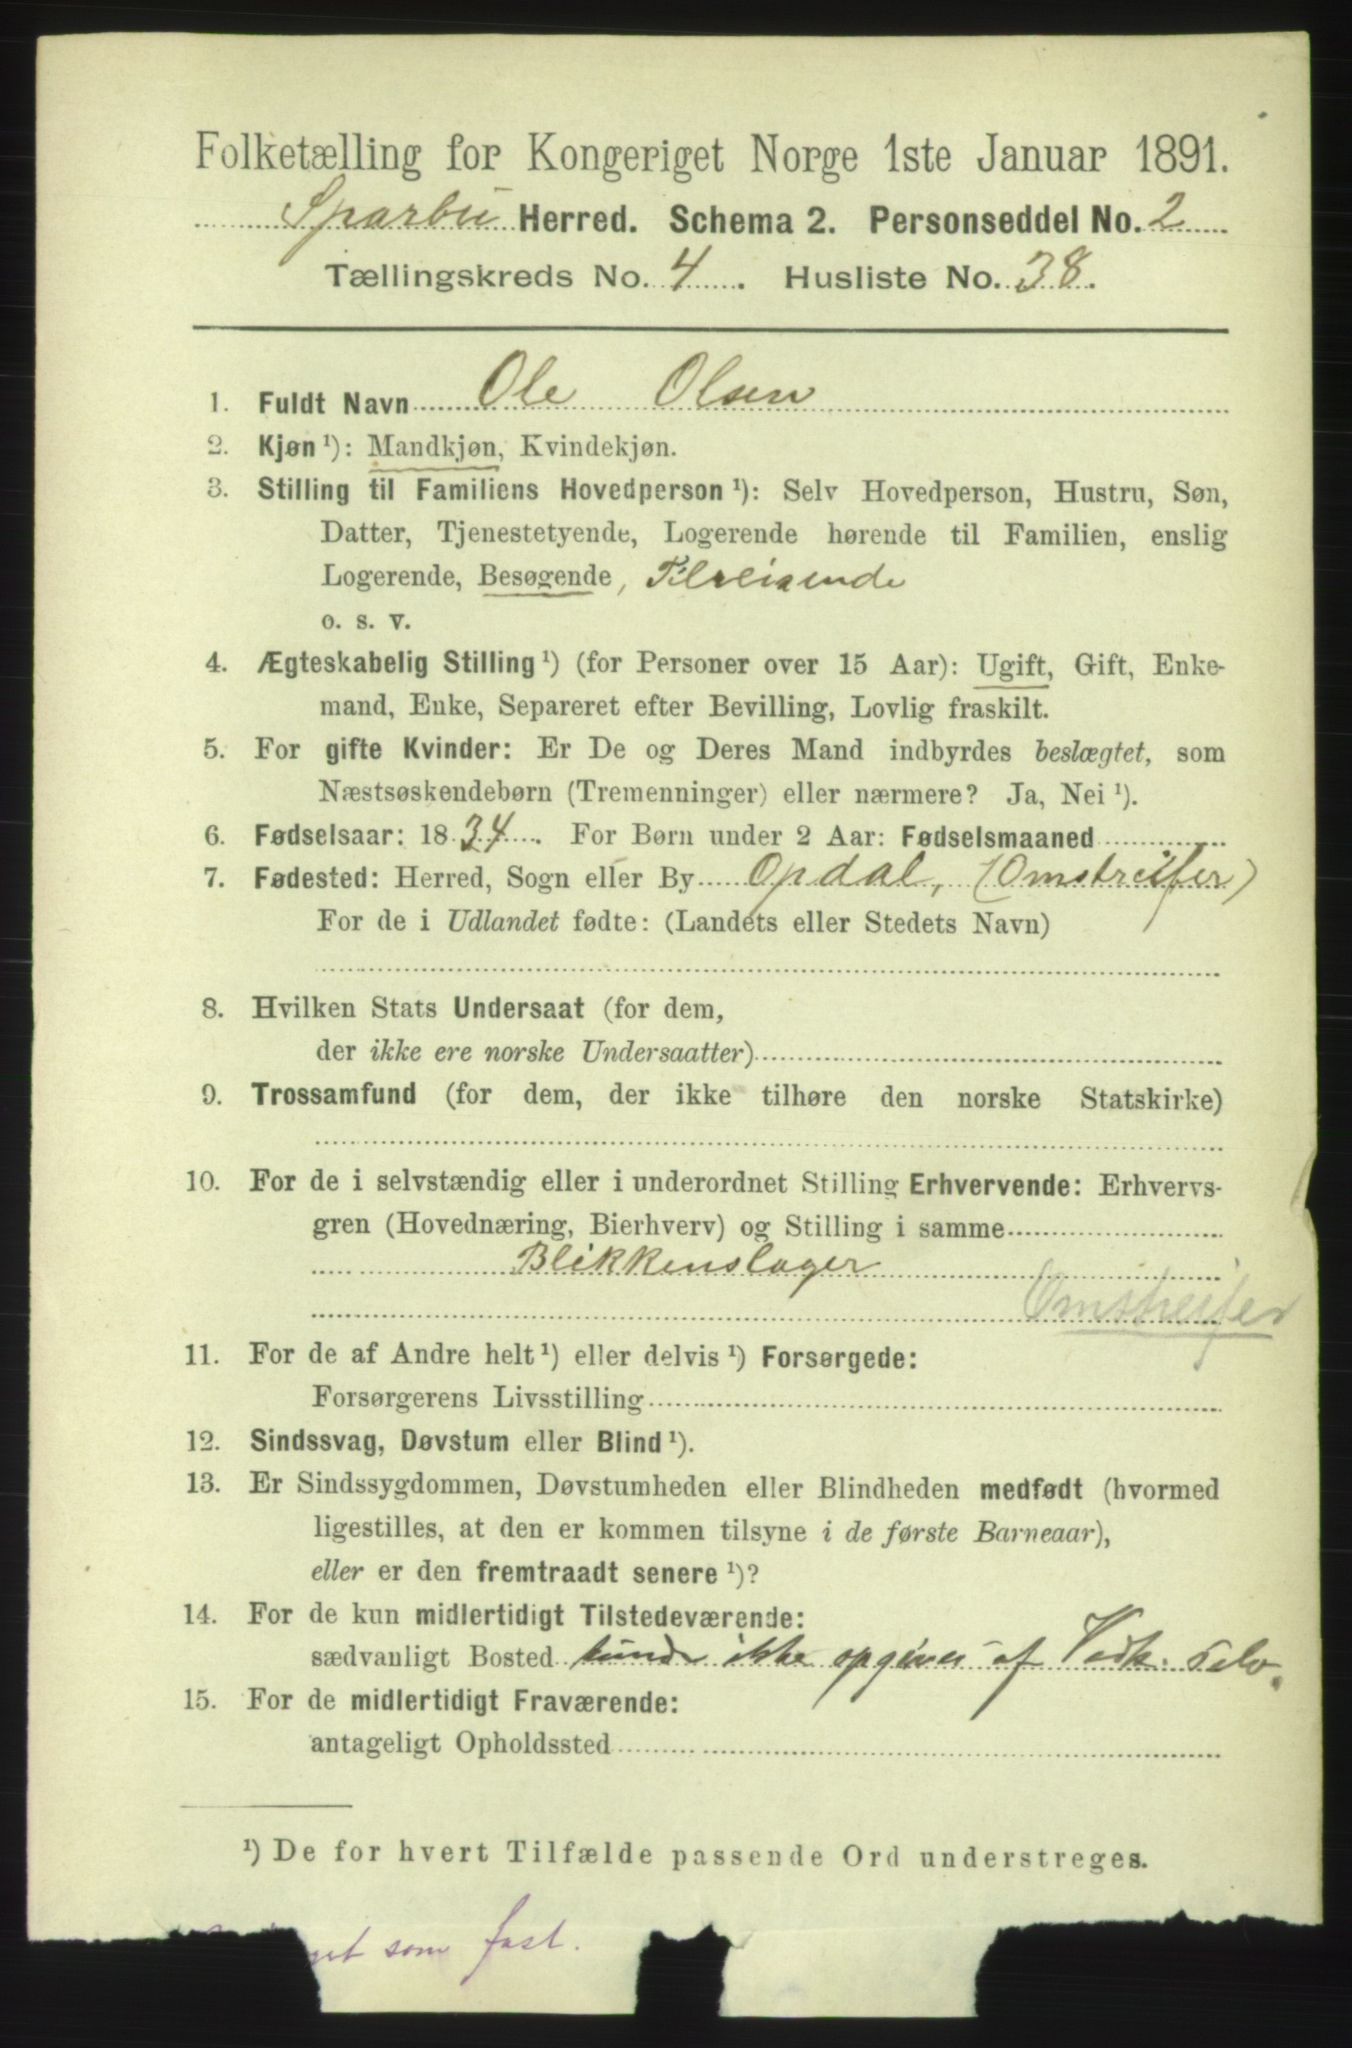 Folketælling for Kongeriget Norge 1ste Januar 1891.
Sparbu Herred. Schema 2. Personseddel No. 2
Tællingskreds No. 4. Husliste No. 38.
1. Fuldt Navn Ole Olsen
2. Kjøn ¹): Mandkjøn, Kvindekjøn.
3. Stilling til Familiens Hovedperson ¹): Selv Hovedperson, Hustru, Søn,
Datter, Tjenestetyende, Logerende hørende til Familien, enslig
Logerende, Besøgende, Tilreisende
o. s. v.
4. Ægteskabelig Stilling ¹) (for Personer over 15 Aar): Ugift, Gift, Enke-
mand, Enke, Separeret efter Bevilling, Lovlig fraskilt.
5. For gifte Kvinder: Er De og Deres Mand indbyrdes beslægtet, som
Næstsøskendebørn (Tremenninger) eller nærmere? Ja, Nei ¹).
6. Fødselsaar: 1834. For Børn under 2 Aar: Fødselsmaaned
7. Fødested: Herred, Sogn eller By Opdal, (Omstreifer)
For de i Udlandet fødte: (Landets eller Stedets Navn)
8. Hvilken Stats Undersaat (for dem,
der ikke ere norske Undersaatter)
9. Trossamfund (for dem, der ikke tilhøre den norske Statskirke)
10. For de i selvstændig eller i underordnet Stilling Erhvervende: Erhvervs-
gren (Hovednæring, Bierhverv) og Stilling i samme
Blikkenslager
Omstreifer
11. For de af Andre helt ¹) eller delvis ¹) Forsørgede:
Forsørgerens Livsstilling
12. Sindssvag, Døvstum eller Blind ¹).
13. Er Sindssygdommen, Døvstumheden eller Blindheden medfødt (hvormed
ligestilles, at den er kommen tilsyne i de første Barneaar),
eller er den fremtraadt senere ¹)?
14. For de kun midlertidigt Tilstedeværende:
sædvanligt Bosted kunde ikke opgives af Vedk. selv.
15. For de midlertidigt Fraværende:
antageligt Opholdssted
¹) De for hvert Tilfælde passende Ord understreges.
som fast.